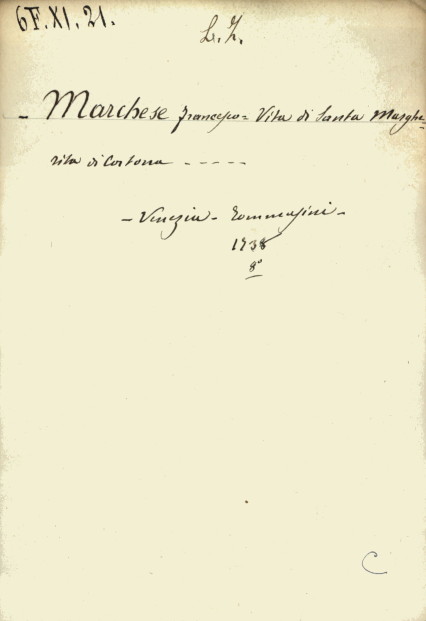 6F.XI.21.
L.I.
- Marchese Francesco = Vita di Santa Marghe-
rita di Cortona - - - - -
- Venezia - Tommasini -
1738
8°
C